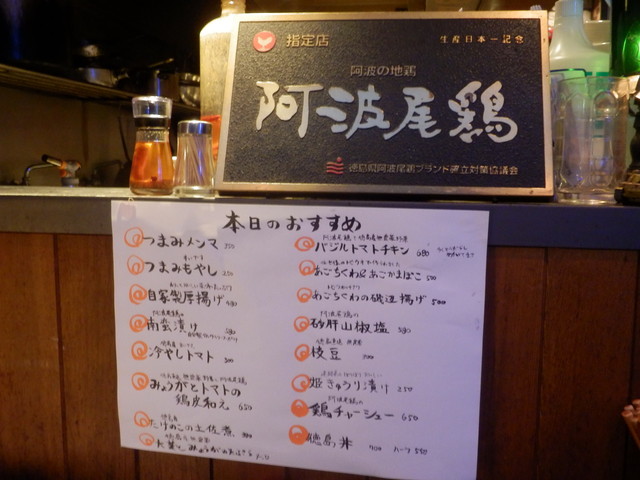 指定店
生産日本一記念
阿波の地鶏
阿波尾鶏
徳島県阿波尾鶏ブランド確立対策協議会
本日のおすすめ
つまみメンマ
つまみもやし 250
自家製厚揚げ
阿波尾鶏の
南蛮漬け 580
冷やしトマト 300
みょうがとトマトの
鶏皮和え 650
徳島産
たけのこの土佐煮
バジルトマトチキン 680
あごちくわ&あごかまぼこ 500
あごちくわの磯辺揚げ 500
阿波尾鶏の
砂肝山椒塩 580
枝豆
姫きゅうり漬け 250
阿波尾鶏の
鶏チャーシュー 650
徳島丼 900 ハーフ 550